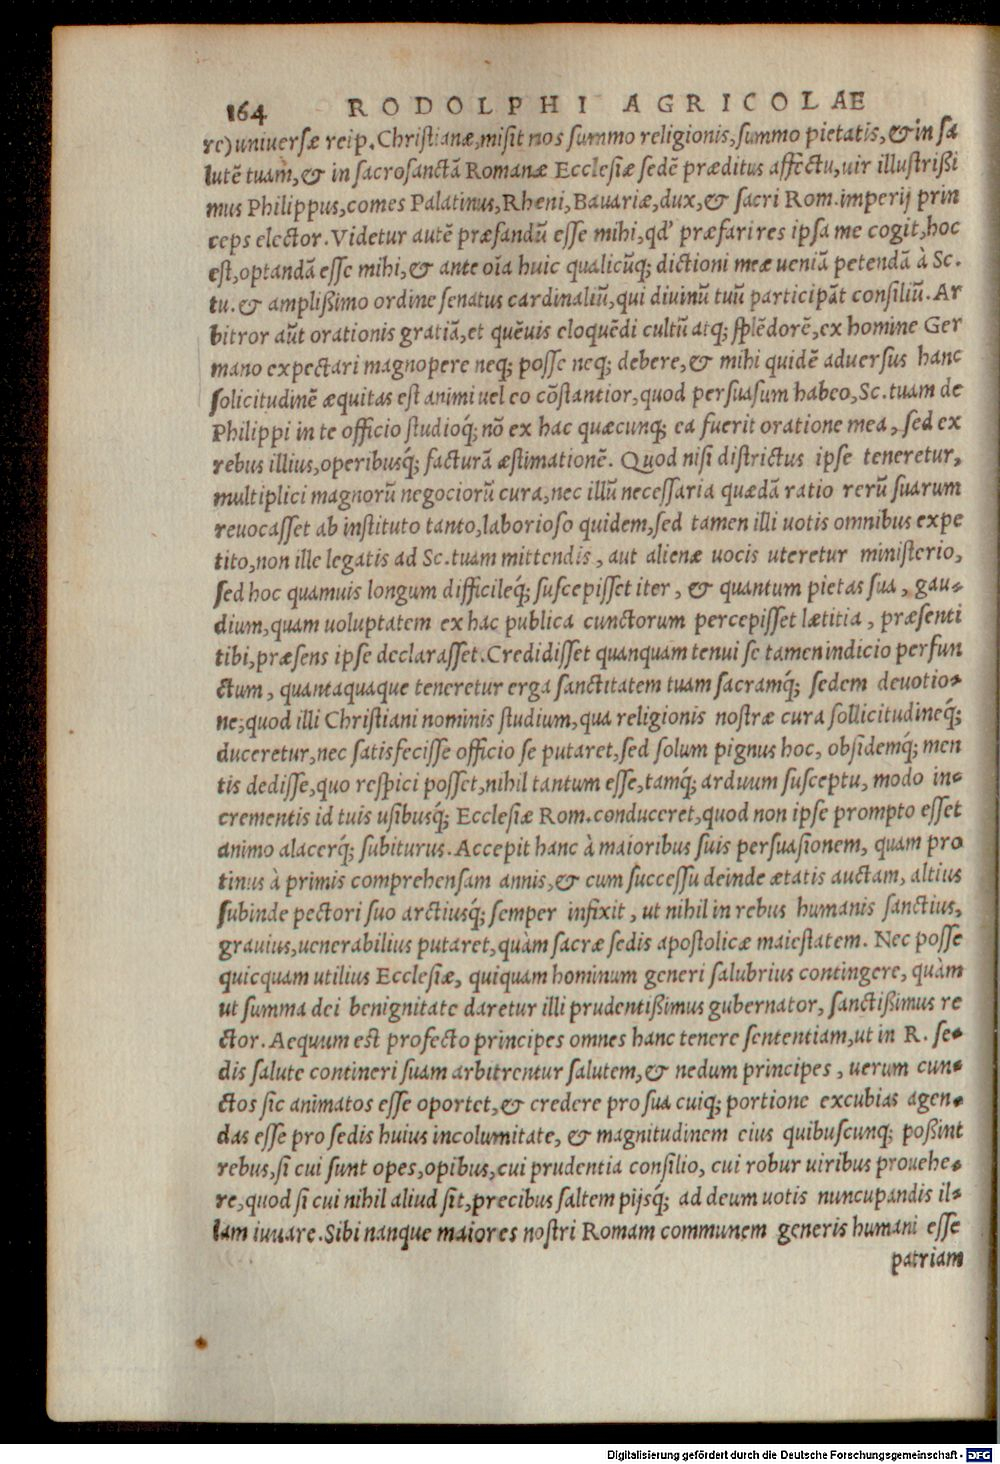 164 RODOLPHI AGRICOLAE
re) universæ reip. Christianæ, misit nos summo religionis, summo pietatis, & in sa
lutē tuam, & in sacrosanctā Romanæ Ecclesiæ sedē præditus affectu, uir illustrißi
mus Philippus, comes Palatinus, Rheni, Bauariæ, dux, & sacri Rom. imperij prin
ceps elector. Videtur autē præfandū esse mihi, qd' præfari res ipsa me cogit, hoc
est, optandā esse mihi, & ante oīa huic qualicūq; dictioni meæ ueniā petendā à Sc.
tu. & amplißimo ordine senatus cardinaliū, qui diuinū tuū participāt consiliū. Ar
bitror aūt orationis gratiā, et quēuis eloquēdi cultū atq; splēdorē, ex homine Ger
mano expectari magnopere neq; posse neq; debere, & mihi quidē aduersus hanc
solicitudinē æquitas est animi uel eo cōstantior, quod persuasum habeo, Sc. tuam de
Philippi in te officio studioq́; nō ex hac quæcunq; ea fuerit oratione mea, sed ex
rebus illius, operibusq́; facturā æstimationē. Quod nisi districtus ipse teneretur,
multiplici magnorū negociorū cura, nec illū necessaria quædā ratio rerū suarum
reuocasset ab instituto tanto, laborioso quidem, sed tamen illi uotis omnibus expe
tito, non ille legatis ad Sc. tuam mittendis, aut alienæ uocis uteretur ministerio,
sed hoc quamuis longum difficileq́; suscepisset iter, & quantum pietas sua, gau-
dium, quam uoluptatem ex hac publica cunctorum percepisset lætitia, præsenti
tibi, præsens ipse declarasset. Credidisset quanquam tenui se tamen indicio perfun
ctum, quantaquaque teneretur erga sanctitatem tuam sacramq́; sedem deuotio-
ne; quod illi Christiani nominis studium, qua religionis nostræ cura sollicitudineq́;
duceretur, nec satisfecisse officio se putaret, sed solum pignus hoc, obsidemq́; men
tis dedisse, quo respici posset, nihil tantum esse, tamq́; arduum susceptu, modo in-
crementis id tuis usibusq́; Ecclesiæ Rom. conduceret, quod non ipse prompto esset
animo alacerq́; subiturus. Accepit hanc à maioribus suis persuasionem, quam pro
tinus à primis comprehensam annis, & cum successu deinde ætatis auctam, altius
subinde pectori suo arctiusq́; semper infixit, ut nihil in rebus humanis sanctius,
grauius, uenerabilius putaret, quàm sacræ sedis apostolicæ maiestatem. Nec posse
quicquam utilius Ecclesiæ, quiquam hominum generi salubrius contingere, quàm
ut summa dei benignitate daretur illi prudentißimus gubernator, sanctißimus re
ctor. Aequum est profecto principes omnes hanc tenere sententiam, ut in R. se-
dis salute contineri suam arbitrentur salutem, & nedum principes, uerum cun-
ctos sic animatos esse oportet, & credere pro sua cuiq; portione excubias agen-
das esse pro sedis huius incolumitate, & magnitudinem eius quibuscunq; poßint
rebus, si cui sunt opes, opibus, cui prudentia consilio, cui robur uiribus prouehe-
re, quod si cui nihil aliud sit, precibus saltem pijsq́; ad deum uotis nuncupandis il-
lam iuuare. Sibi nanque maiores nostri Romam communem generis humani esse
patriam
Digitalisierung gefördert durch die Deutsche Forschungsgemeinschaft - DFG